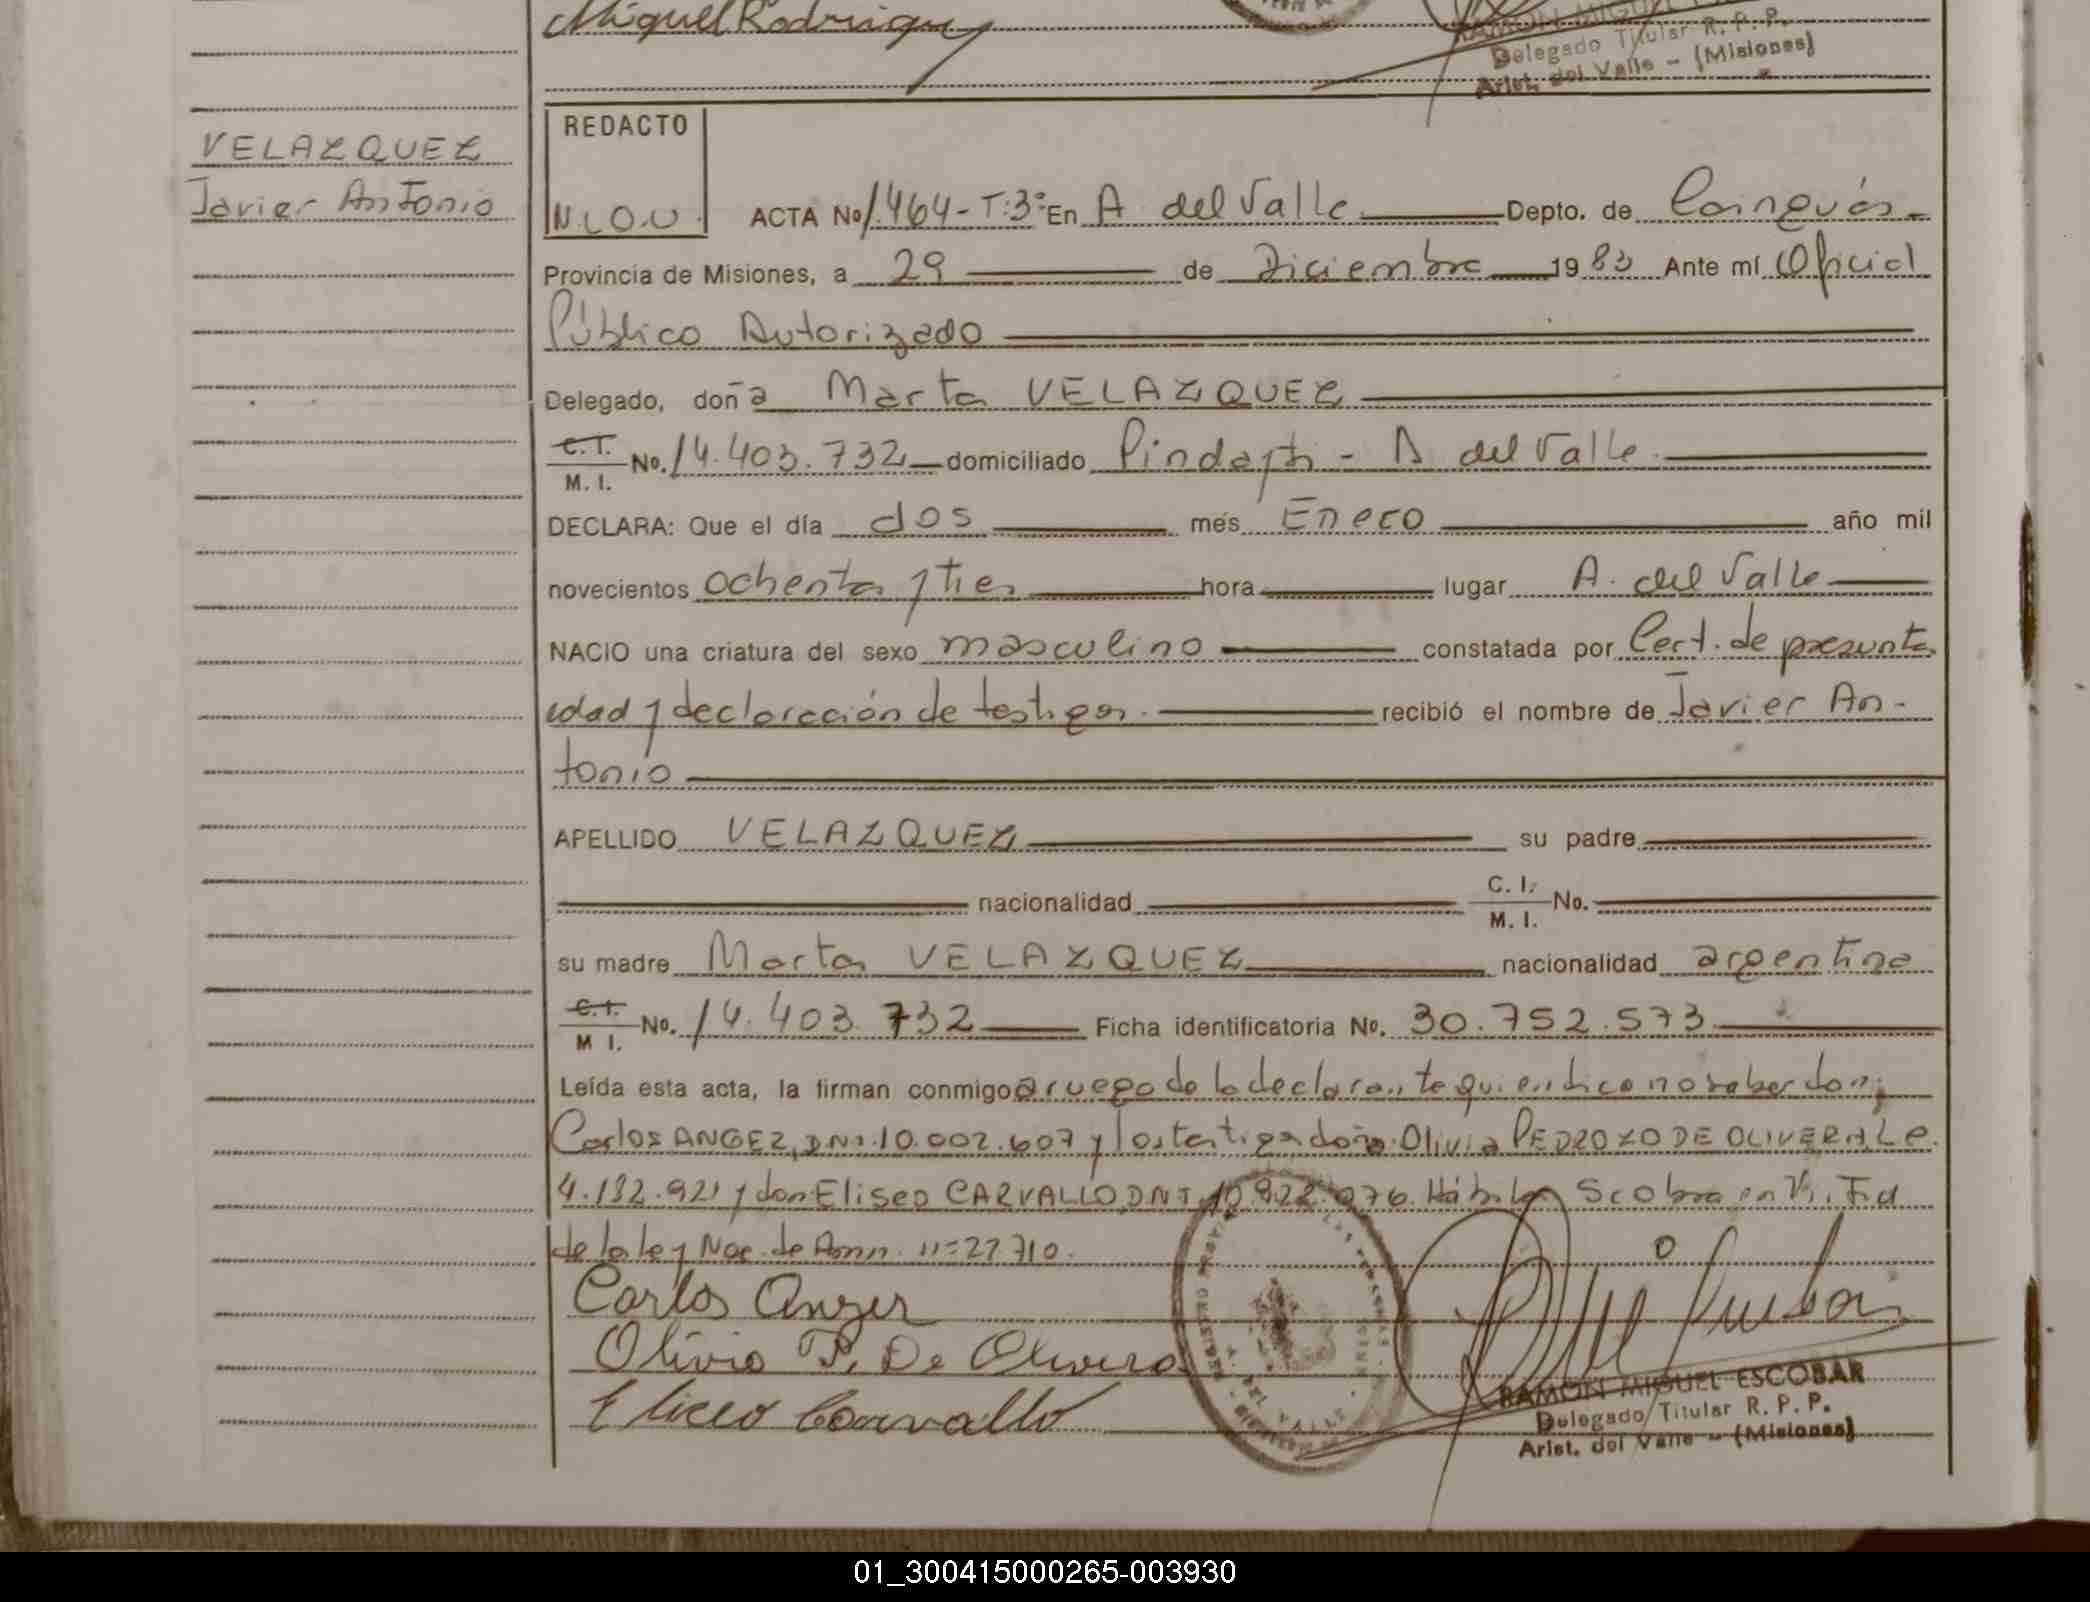 Miguel Rodriguez
RAMON MIGUEL
Delegado Titular R. P. P.
Arist. del Valle - (Misiones)
VELAZQUEZ
Javier Antonio
REDACTO
N.L.O.U.
ACTA No 1.464-T:3º En A del Valle Depto. de Cainguás
Provincia de Misiones, a 29 de Diciembre 1983 Ante mí Oficial
Público Autorizado
Delegado, doña Marta VELAZQUEZ
C.I. M.I. No. 14.403.732 domiciliado Pindayti - A del Valle
DECLARA: Que el día dos mes Enero año mil
novecientos ochenta y tres hora lugar A. del Valle
NACIO una criatura del sexo masculino constatada por Cert. de presunta
edad y declaración de testigos. recibió el nombre de Javier An-
tonio
APELLIDO VELAZQUEZ su padre
nacionalidad C. I. M. I. No.
su madre Marta VELAZQUEZ nacionalidad argentina
C.I. M I. No. 14.403.732 Ficha identificatoria No. 30.752.573
Leída esta acta, la firman conmigo a ruego de la declarante quien dice no saber don;
Carlos ANGER, DNI.10.002.607 y los testigos doña Olivia PEDROZO DE OLIVERA Le.
4.132.921 y don Eliseo CARVALLO DNI 10.822.976. Hábiles Se obra en
de la ley Nac. de Amn. nº 22710.
Carlos Anger
Olivia P. De Olivera
Eliceo Carvallo
REGISTRO PROV
A. DEL VALLE
RAMON MIGUEL ESCOBAR
Delegado Titular R. P. P.
Arist. del Valle - (Misiones)
01_300415000265-003930